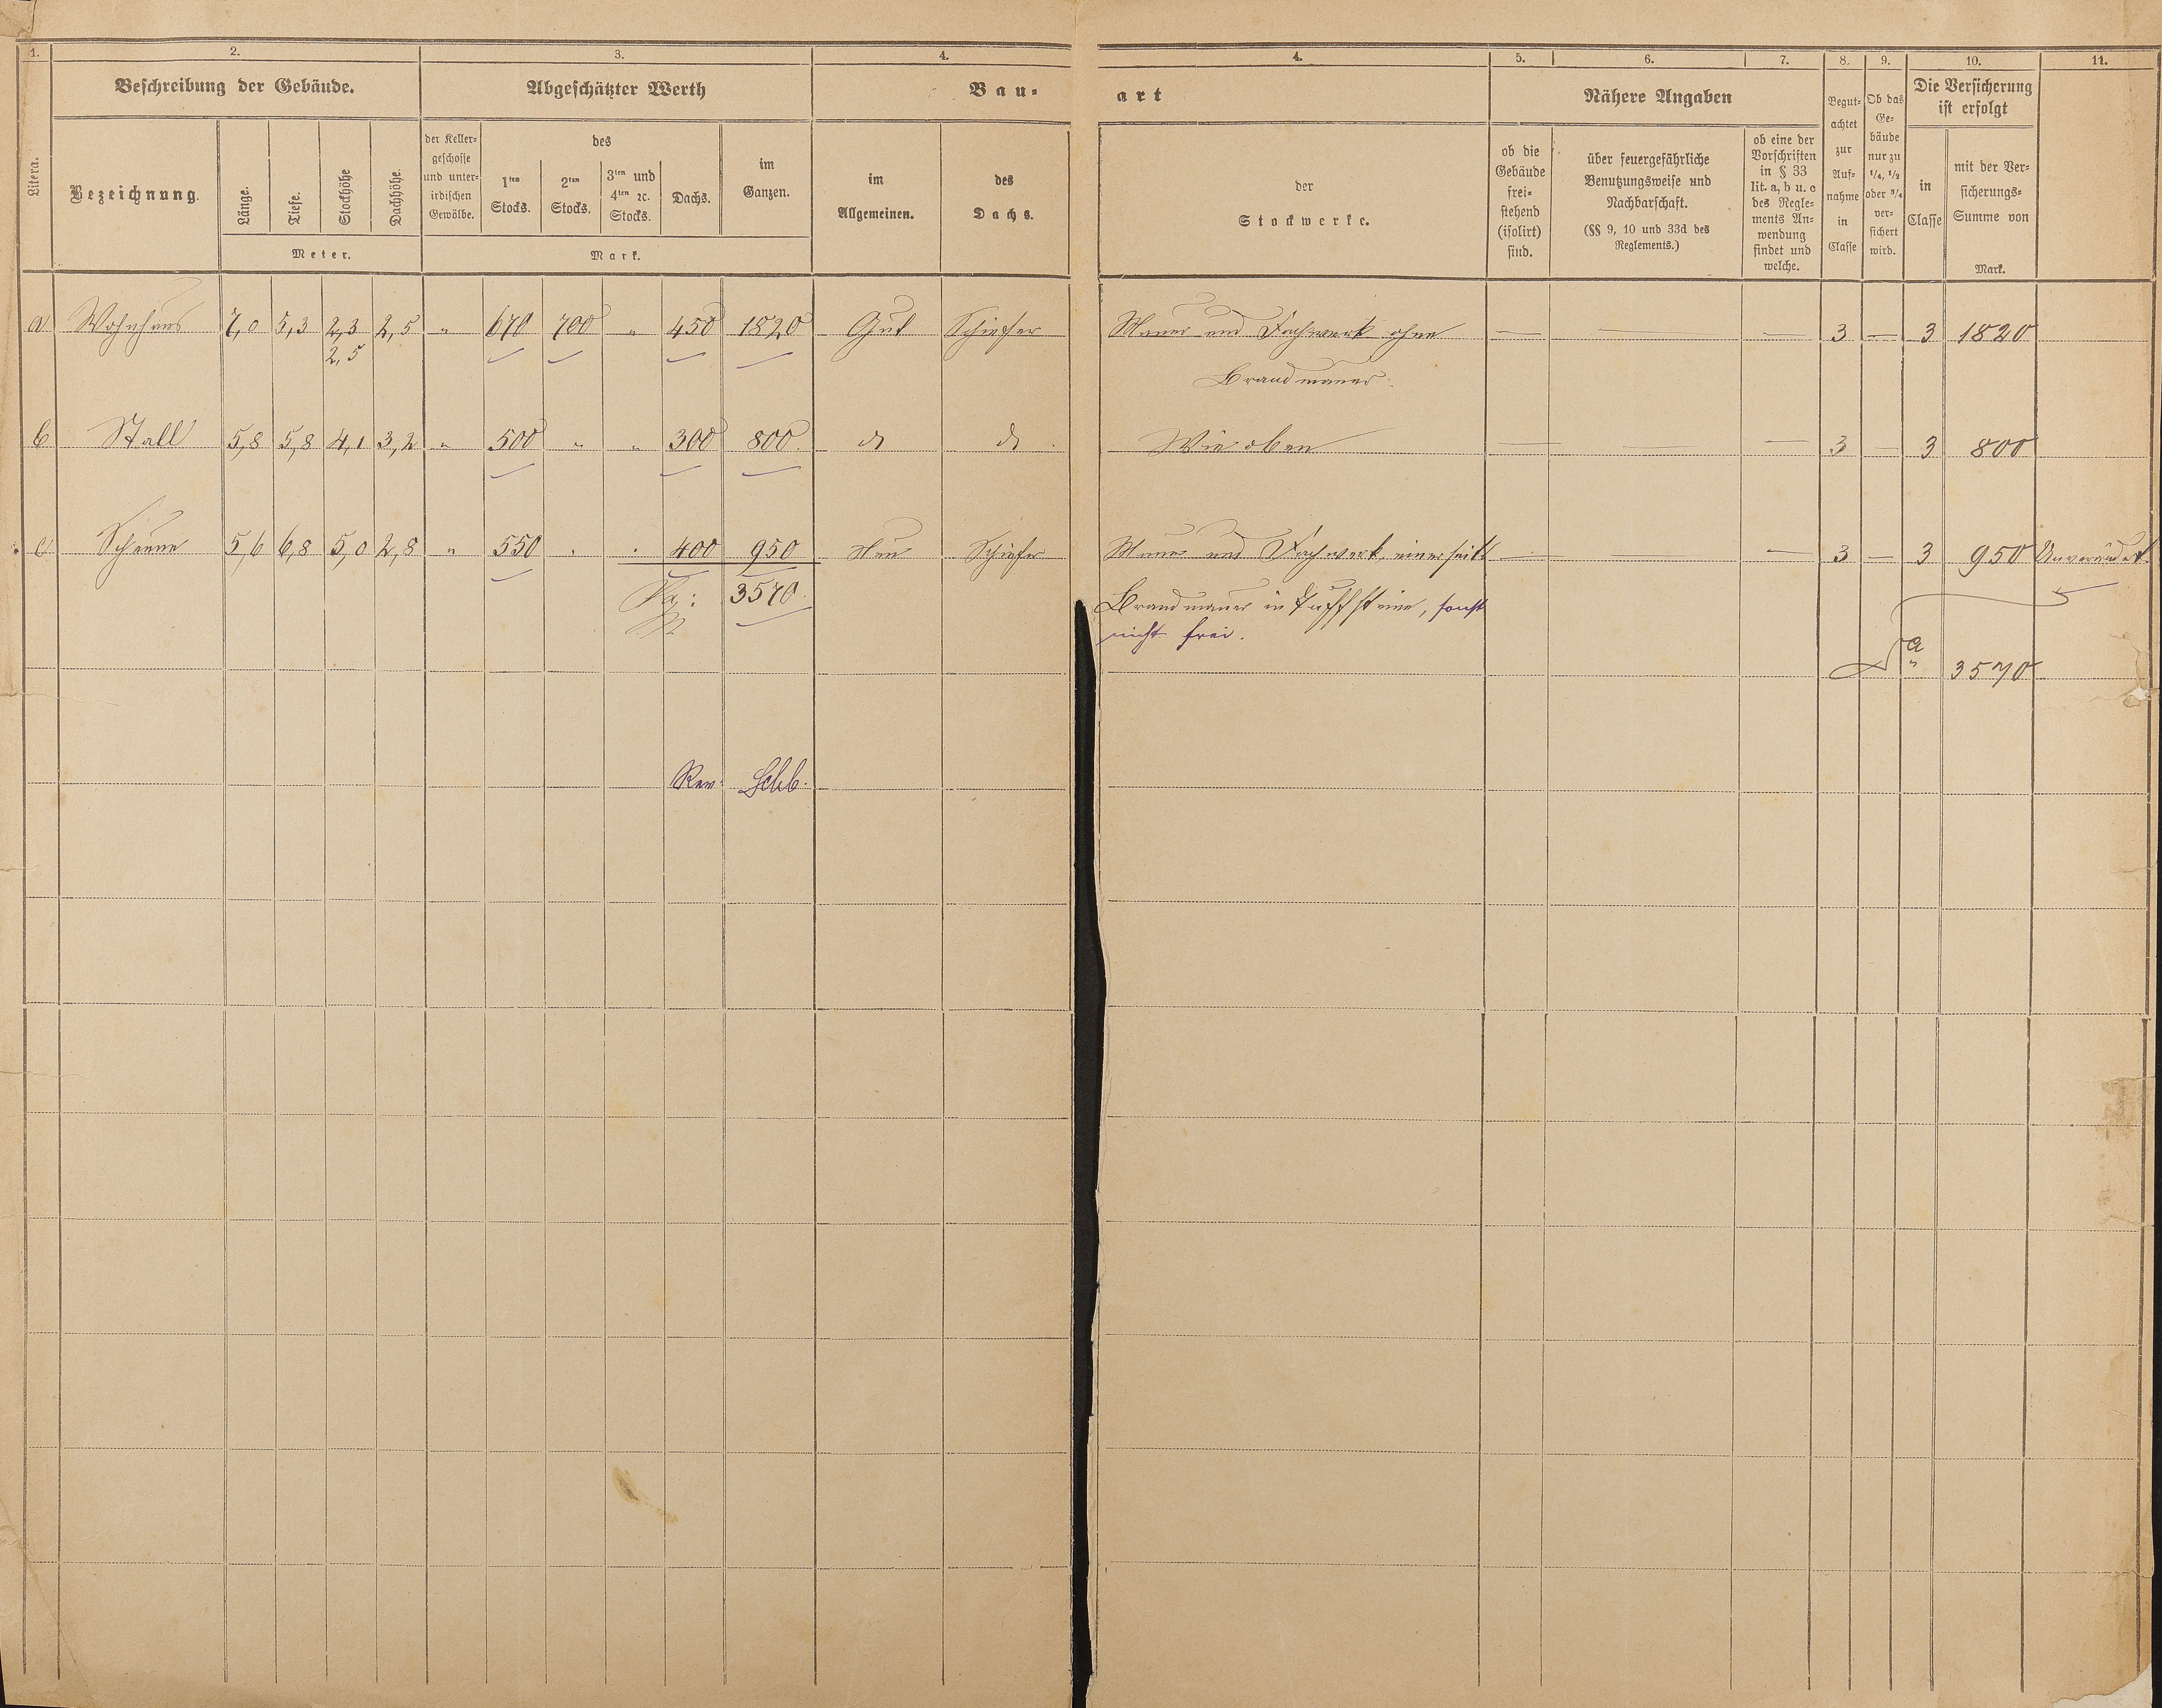 1. 2. 3. 4. 4. 5. 6. 7. 8. 9. 10. 11.
Litera.
Beschreibung der Gebäude.
Bezeichnung.
Länge.
Tiefe.
Stockhöhe
Dachhöhe.
Meter.
Abgeschätzter Werth
der Keller-
geschosse
und unter-
irdischen
Gewölbe.
des
1ten
Stocks.
2ten
Stocks.
3ten und
4ten ꝛc.
Stocks.
Dachs.
im
Ganzen.
Mark.
Bau-
art
im
Allgemeinen.
des
Dachs.
der
Stockwerke.
Nähere Angaben
ob die
Gebäude
frei-
stehend
(isolirt)
sind.
über feuergefährliche
Benutzungsweise und
Nachbarschaft.
(§§ 9, 10 und 33d des
Reglements.)
ob eine der
Vorschriften
in § 33
lit. a, b u. c
des Regle-
ments An-
wendung
findet und
welche.
Begut-
achtet
zur
Auf-
nahme
in
Classe
Ob das
Ge-
bäude
nur zu
1/4, 1/2
oder 3/4
ver-
sichert
wird.
Die Versicherung
ist erfolgt
in
Classe
mit der Ver-
sicherungs-
Summe von
Mark.
a Wohnhaus 7,0 5,3 2,3 2,5 " 670 700 " 450 1820 Gut Schiefer Mauer und Fachwerk ohne — — — 3 — 3 1820
2,5
Brandmauer.
b Stall 5,8 5,8 4,1 3,2 " 500 " " 300 800. do do. Wie oben — — — 3 — 3 800
c Scheune 5,6 6,8 5,0 2,8 " 550 " " 400 950 Neu Schiefer Mauer und Fachwerk, einerseits — — — 3 — 3 950 Unverändert.
Sa: 3570. Brandmauer in Tuffsteine, sonst
nicht frei.
Sa 3570
Rev.